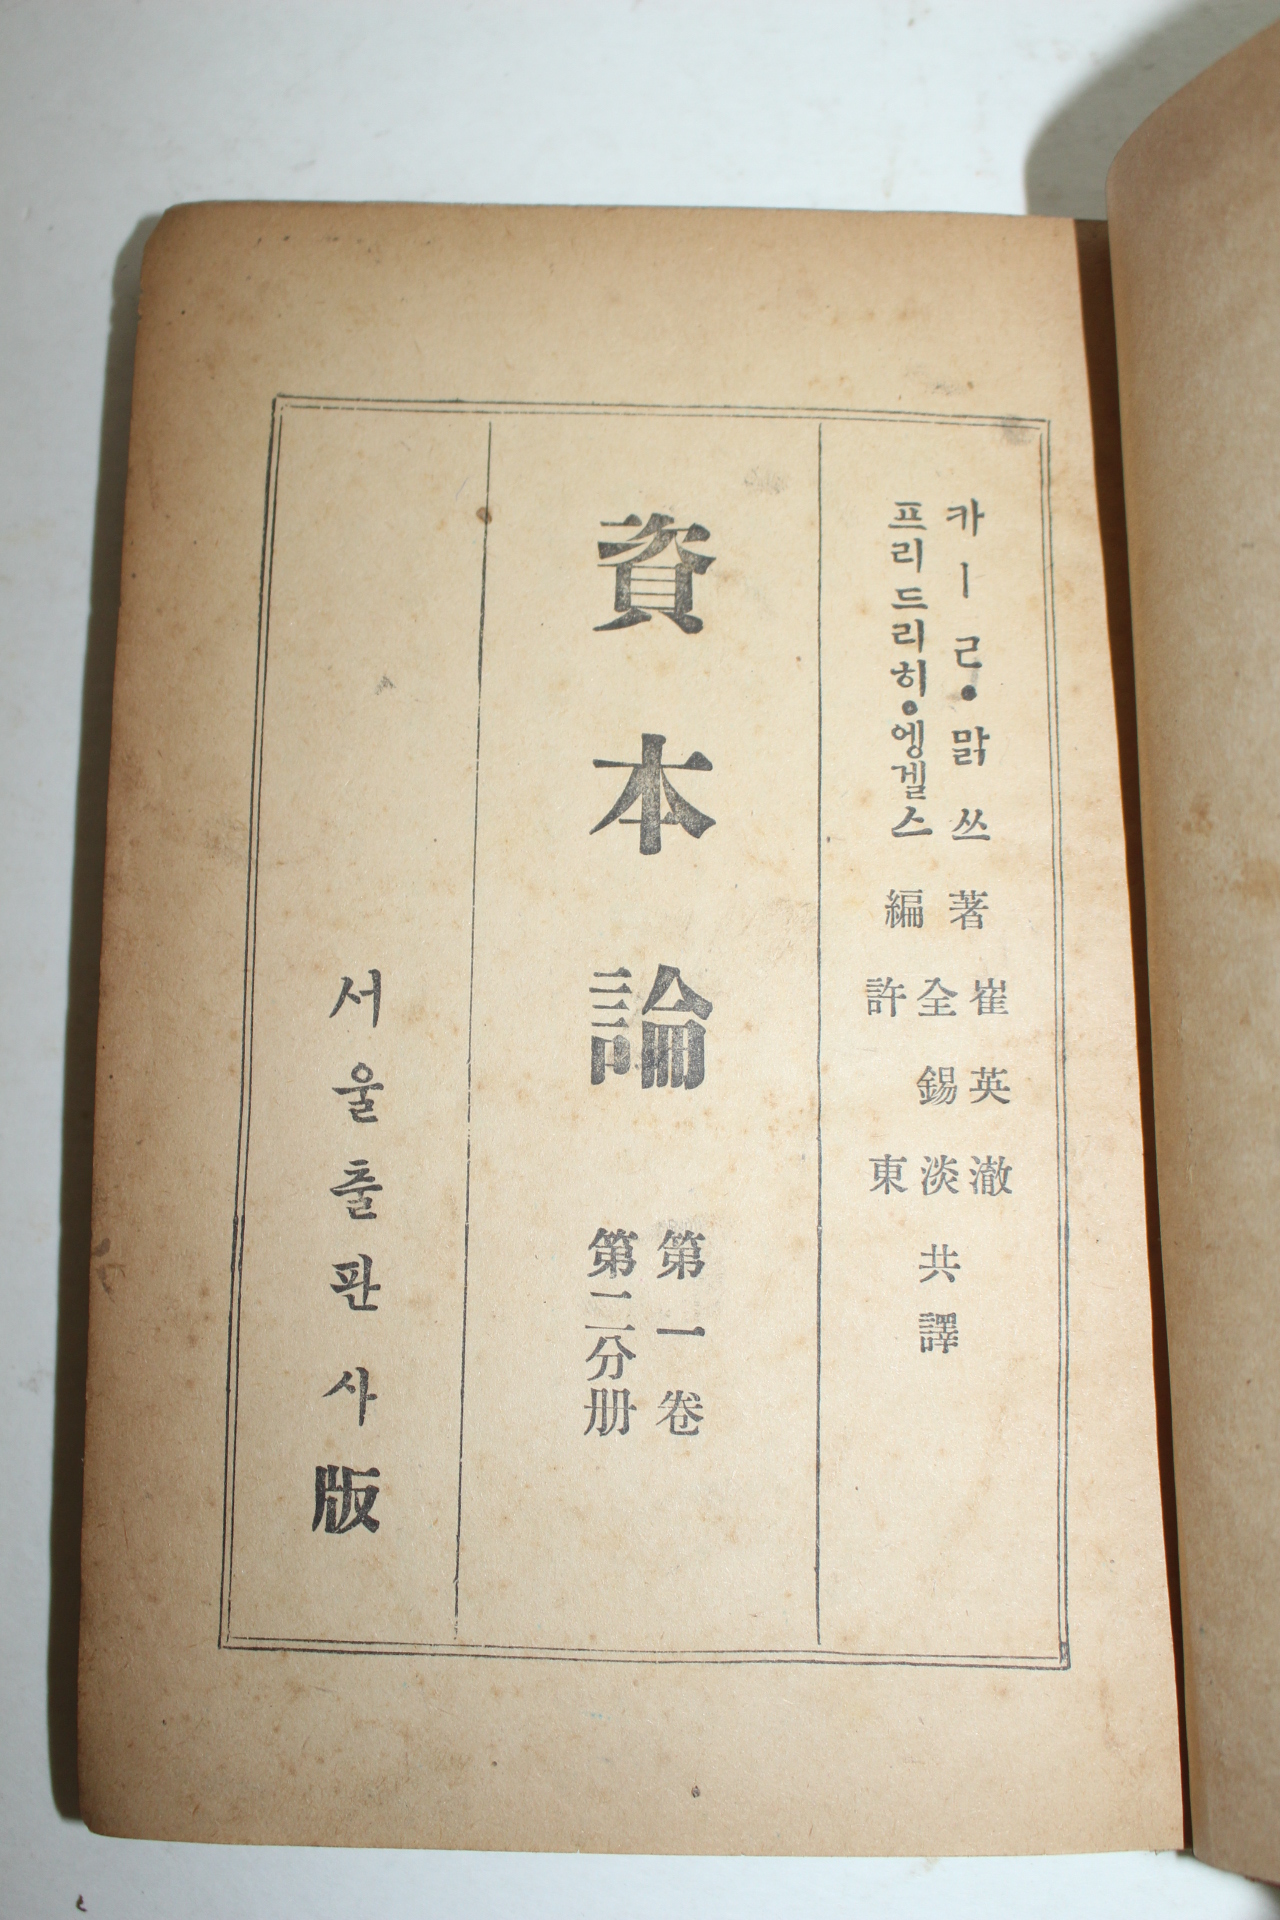 카ーㄹ·맑쓰 著
프리드리히·엥겔스 編
崔英澈
全錫淡
許東
共譯
資本論
第一卷
第二分册
서울출판사版